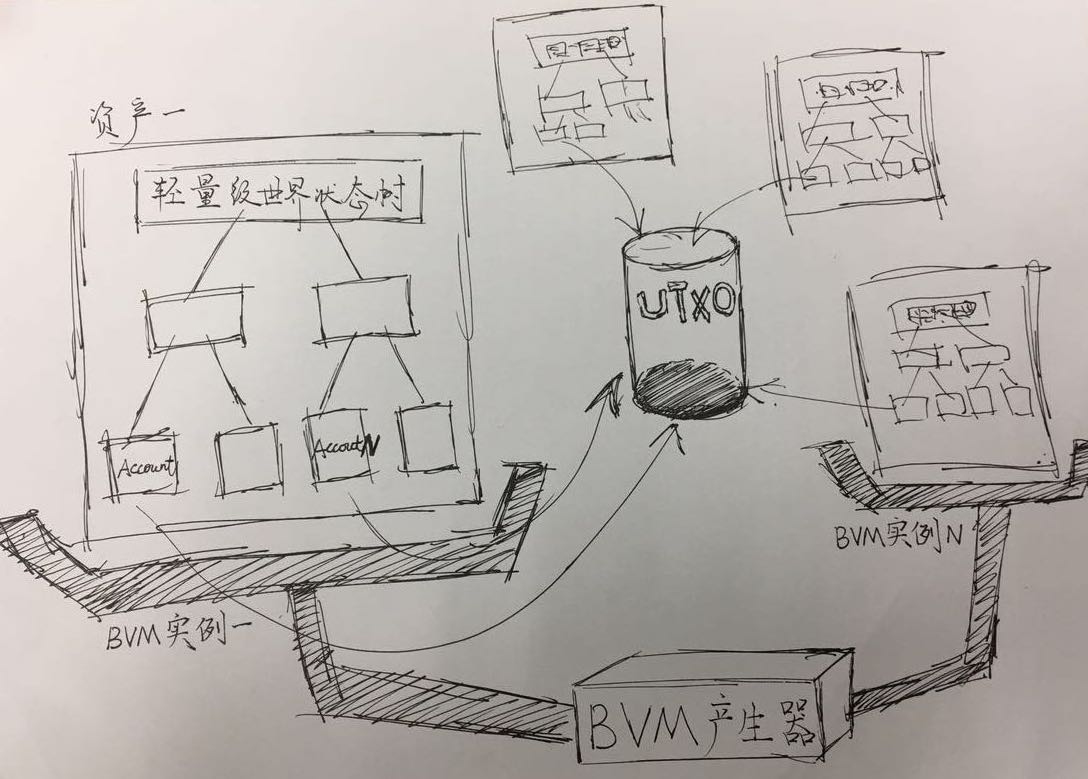 资产一
轻量级世界状态树
UTXO
Account
AccoutN
BVM实例一
BVM实例N
BVM产生器